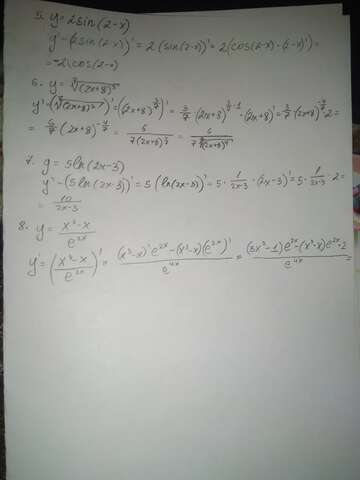 5. y = 2sin(2-x)
y' = (2sin(2-x))' = 2(sin(2-x))' = 2(cos(2-x)·(2-x)') =
= -2cos(2-x)
6. y = ⁷√(2x+8)³
y' = (⁷√(2x+8)³)' = ((2x+8)^(3/7))' = 3/7 (2x+8)^(3/7-1)·(2x+8)' = 3/7 (2x+8)^(-4/7)·2 =
= 6/7 (2x+8)^(-4/7) = 6/(7(2x+8)^(4/7)) = 6/(7 ⁷√(2x+8)⁴)
7. y = 5ln(2x-3)
y' = (5ln(2x-3))' = 5(ln(2x-3))' = 5·1/(2x-3)·(2x-3)' = 5·1/(2x-3)·2 =
= 10/(2x-3)
8. y = (x³-x)/e^(2x)
y' = ((x³-x)/e^(2x))' = ((x³-x)'e^(2x)-(x³-x)(e^(2x))')/e^(4x) = ((3x²-1)e^(2x)-(x³-x)e^(2x)·2)/e^(4x) =